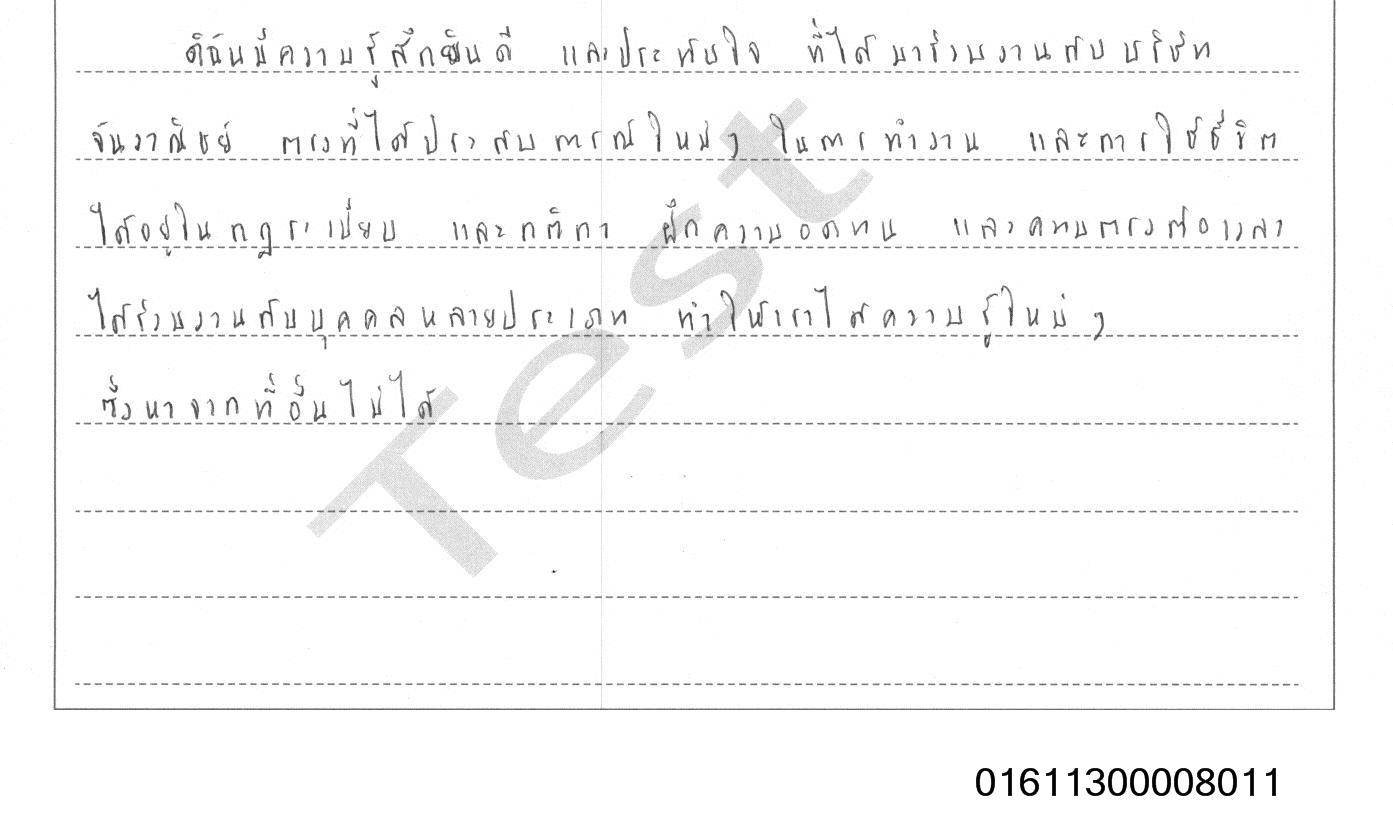 ดิฉันมีความรู้สึกยินดี และประทับใจ ที่ได้มาร่วมงานกับบริษัท
จันวาณิชย์ ตรงที่ได้ประสบการณ์ใหม่ๆ ในการทำงาน และการใช้ชีวิต
ได้อยู่ในกฎระเบียบ และกติกา ฝึกความอดทน และความตรงต่อเวลา
ได้ร่วมงานกับบุคคลหลายประเภท ทำให้เราได้ความรู้ใหม่ๆ
ซึ่งหาจากที่อื่นไม่ได้
Test
01611300008011